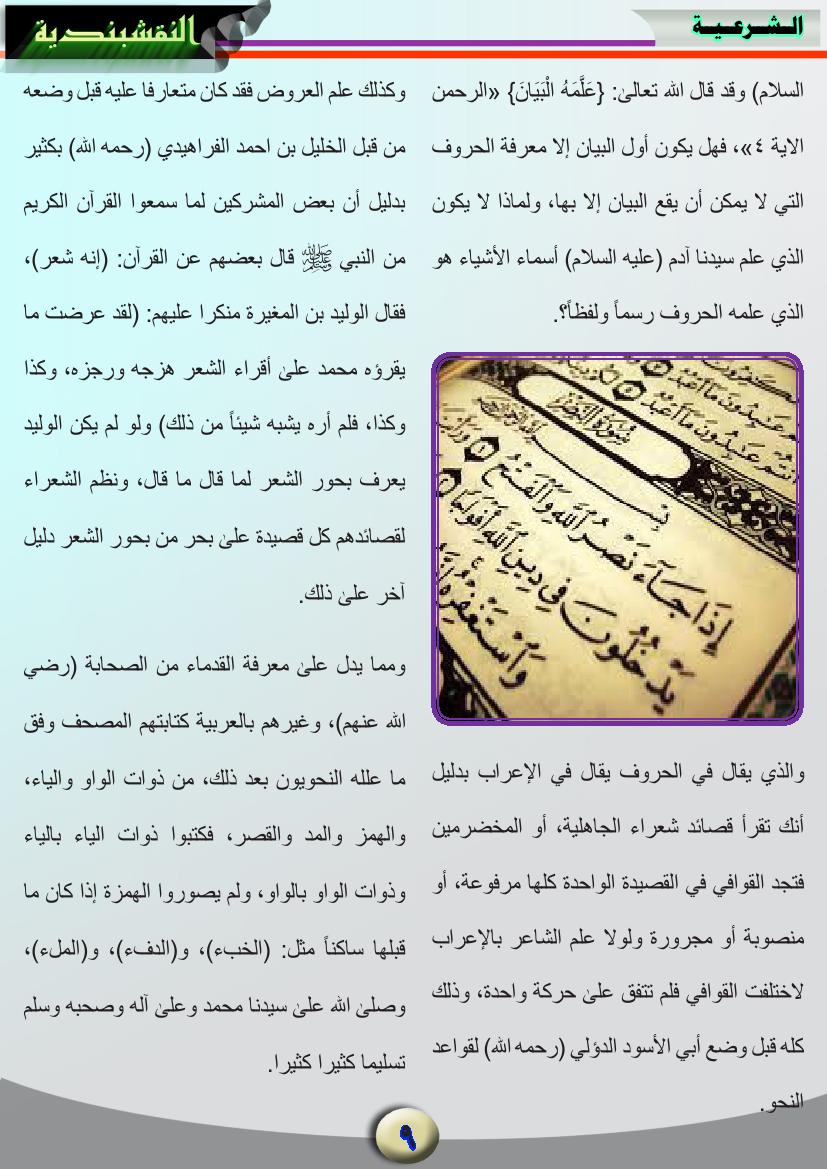 الشرعية
النقشبندية
السلام) وقد قال الله تعالىٰ: {عَلَّمَهُ الْبَيَانَ} «الرحمن
الاية ٤»، فهل يكون أول البيان إلا معرفة الحروف
التي لا يمكن أن يقع البيان إلا بها، ولماذا لا يكون
الذي علم سيدنا آدم (عليه السلام) أسماء الأشياء هو
الذي علمه الحروف رسماً ولفظاً؟.
سُورَةُ النَّصْرِ
إِذَا جَاءَ نَصْرُ اللَّهِ وَالْفَتْحُ
يَدْخُلُونَ فِي دِينِ اللَّهِ أَفْوَاجًا
وَاسْتَغْفِرْهُ
والذي يقال في الحروف يقال في الإعراب بدليل
أنك تقرأ قصائد شعراء الجاهلية، أو المخضرمين
فتجد القوافي في القصيدة الواحدة كلها مرفوعة، أو
منصوبة أو مجرورة ولولا علم الشاعر بالإعراب
لاختلفت القوافي فلم تتفق علىٰ حركة واحدة، وذلك
كله قبل وضع أبي الأسود الدؤلي (رحمه الله) لقواعد
النحو.
وكذلك علم العروض فقد كان متعارفا عليه قبل وضعه
من قبل الخليل بن احمد الفراهيدي (رحمه الله) بكثير
بدليل أن بعض المشركين لما سمعوا القرآن الكريم
من النبي ﷺ قال بعضهم عن القرآن: (إنه شعر)،
فقال الوليد بن المغيرة منكرا عليهم: (لقد عرضت ما
يقرؤه محمد علىٰ أقراء الشعر هزجه ورجزه، وكذا
وكذا، فلم أره يشبه شيئاً من ذلك) ولو لم يكن الوليد
يعرف بحور الشعر لما قال ما قال، ونظم الشعراء
لقصائدهم كل قصيدة علىٰ بحر من بحور الشعر دليل
آخر علىٰ ذلك.
ومما يدل علىٰ معرفة القدماء من الصحابة (رضي
الله عنهم)، وغيرهم بالعربية كتابتهم المصحف وفق
ما علله النحويون بعد ذلك، من ذوات الواو والياء،
والهمز والمد والقصر، فكتبوا ذوات الياء بالياء
وذوات الواو بالواو، ولم يصوروا الهمزة إذا كان ما
قبلها ساكناً مثل: (الخبء)، و(الدفء)، و(الملء)،
وصلىٰ الله علىٰ سيدنا محمد وعلىٰ آله وصحبه وسلم
تسليما كثيرا كثيرا.
٩